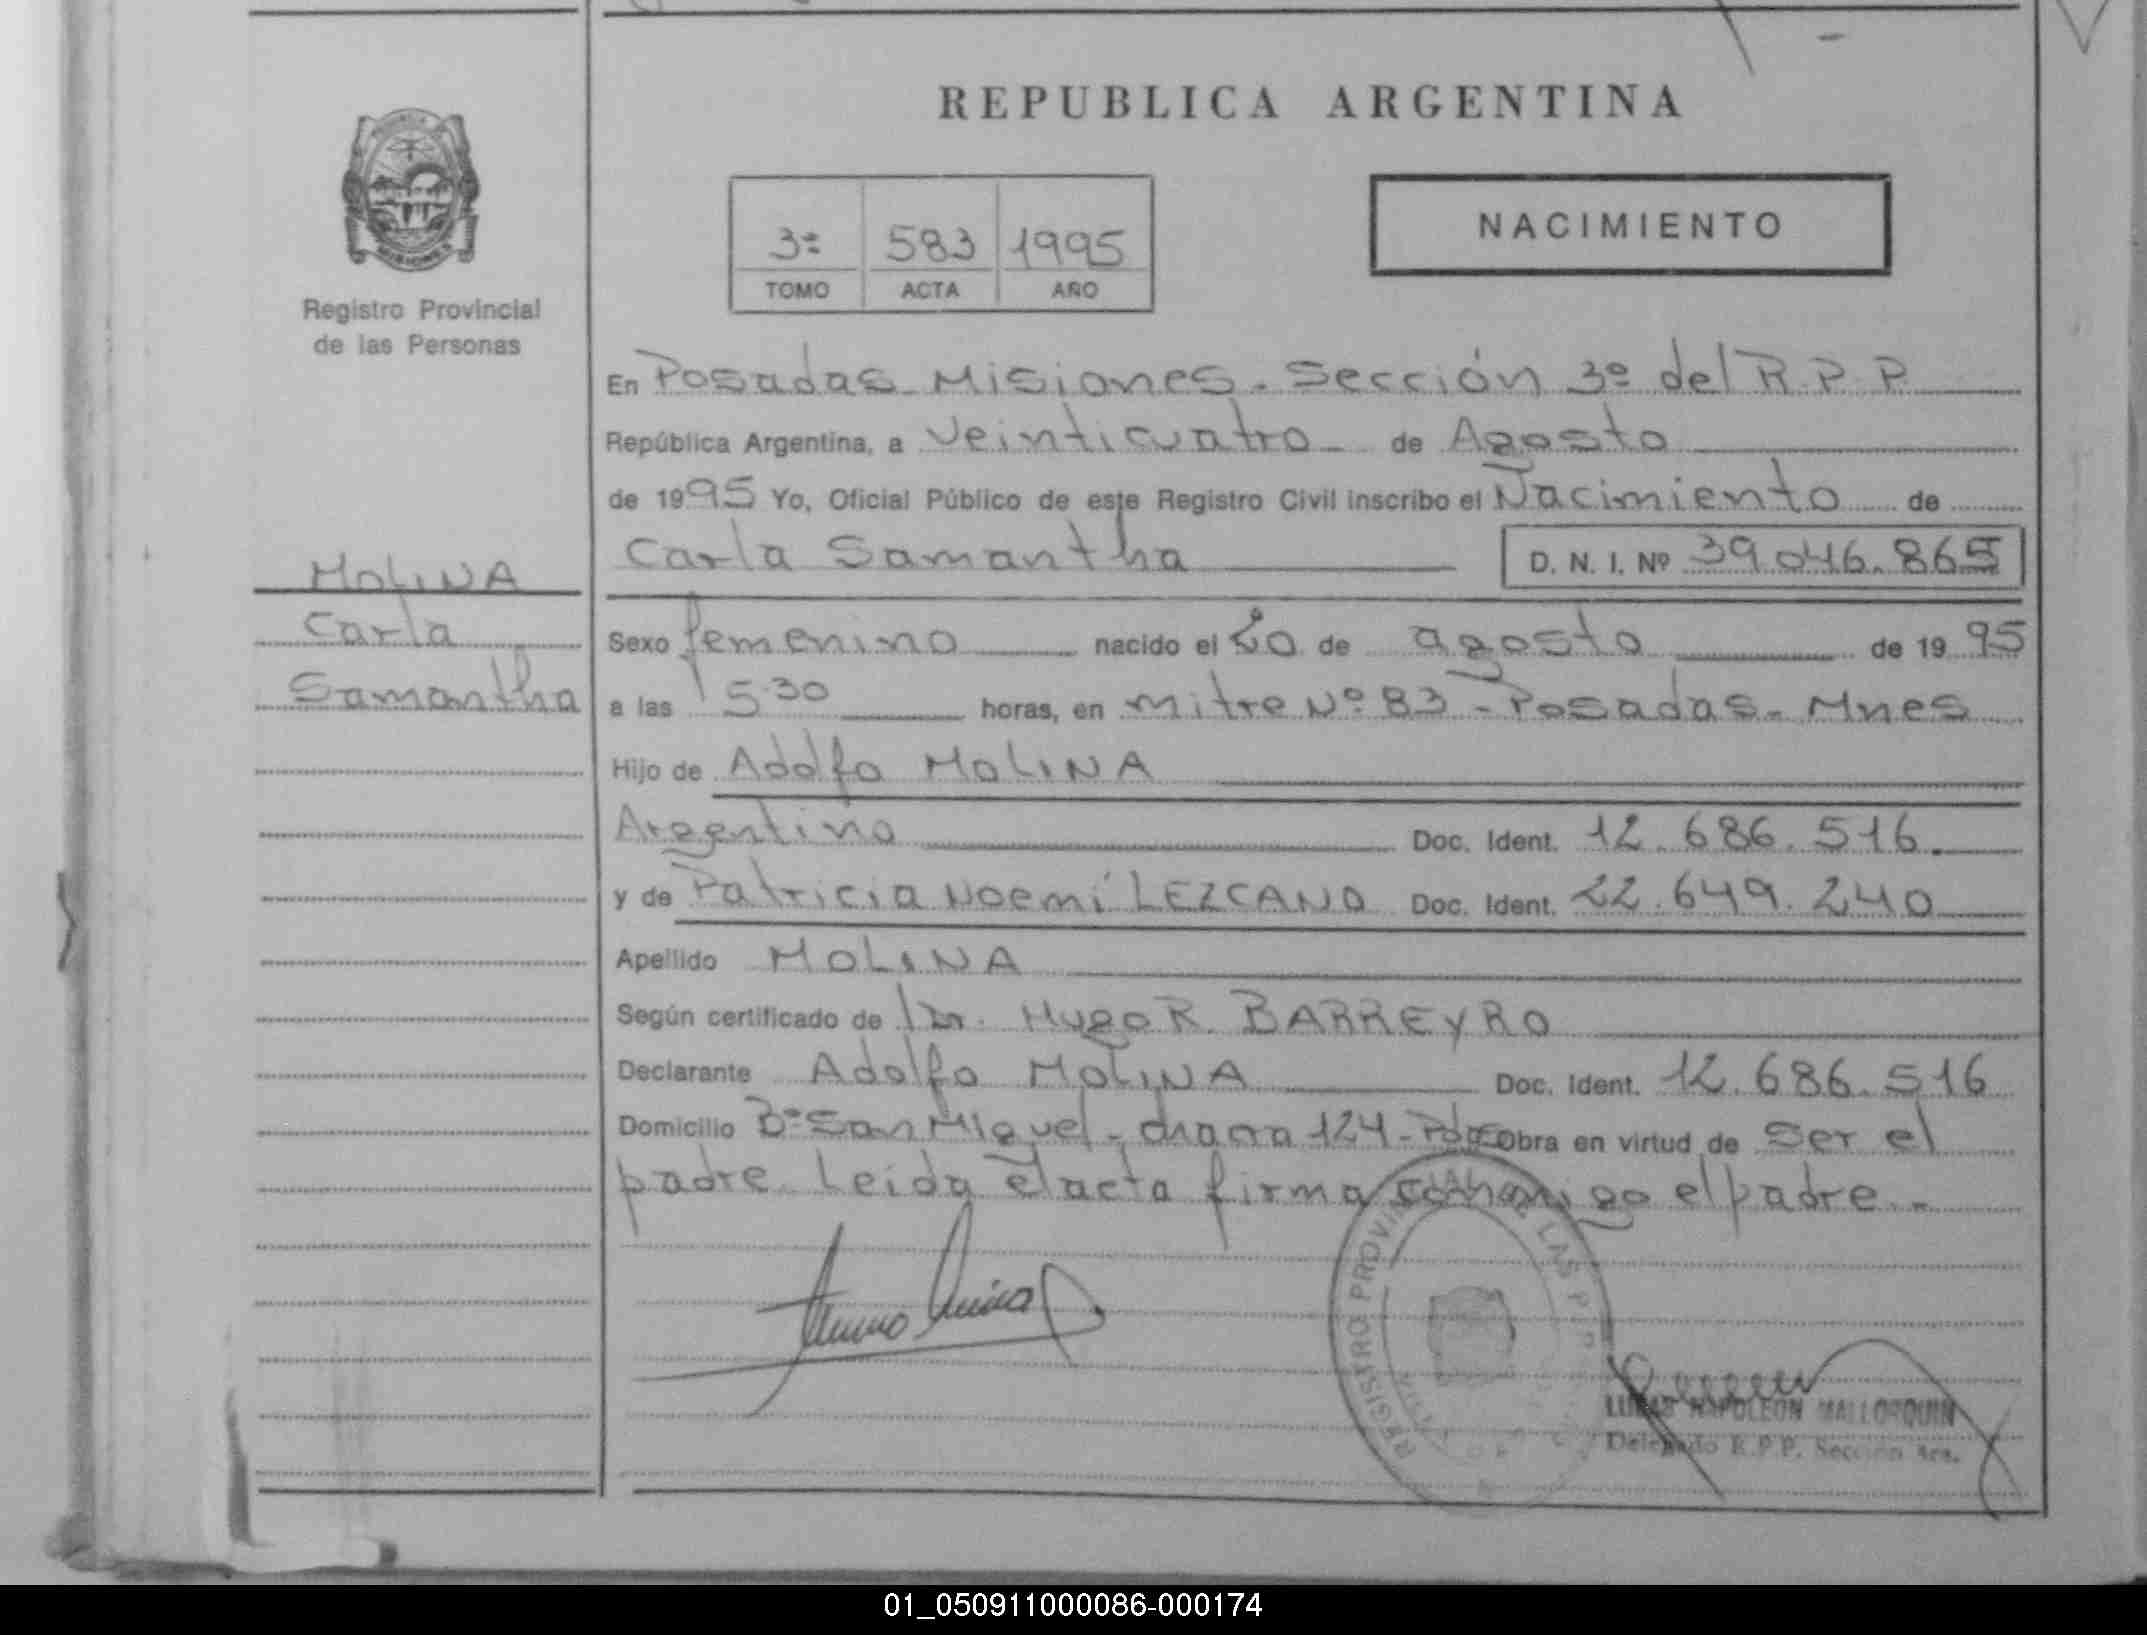 REPUBLICA ARGENTINA
NACIMIENTO
3º 583 1995
TOMO ACTA AÑO
Registro Provincial
de las Personas
En Posadas Misiones. Sección 3º del R.P.P
República Argentina, a Veinticuatro de Agosto
de 1995 Yo, Oficial Público de este Registro Civil inscribo el Nacimiento de
Carla Samantha D. N. I. Nº 39.046.865
MOLINA
Carla
Samantha
Sexo femenino nacido el 20 de agosto de 1995
a las 15.30 horas, en Mitre Nº 83 - Posadas - Mnes
Hijo de Adolfo MOLINA
Argentino Doc. Ident. 12.686.516.
y de Patricia Noemí LEZCANO Doc. Ident. 22.649.240
Apellido MOLINA
Según certificado de Dr. Hugo R. BARREYRO
Declarante Adolfo MOLINA Doc. Ident. 12.686.516
Domicilio Bº San Miguel - chacra 124 - Pdas Obra en virtud de ser el
padre. Leida el acta firma conmigo el padre.-
REGISTRO PROVINCIAL DE LAS
LUCAS NAPOLEON MALLORQUIN
Delegado R.P.P. Sección 3ra.
01_050911000086-000174